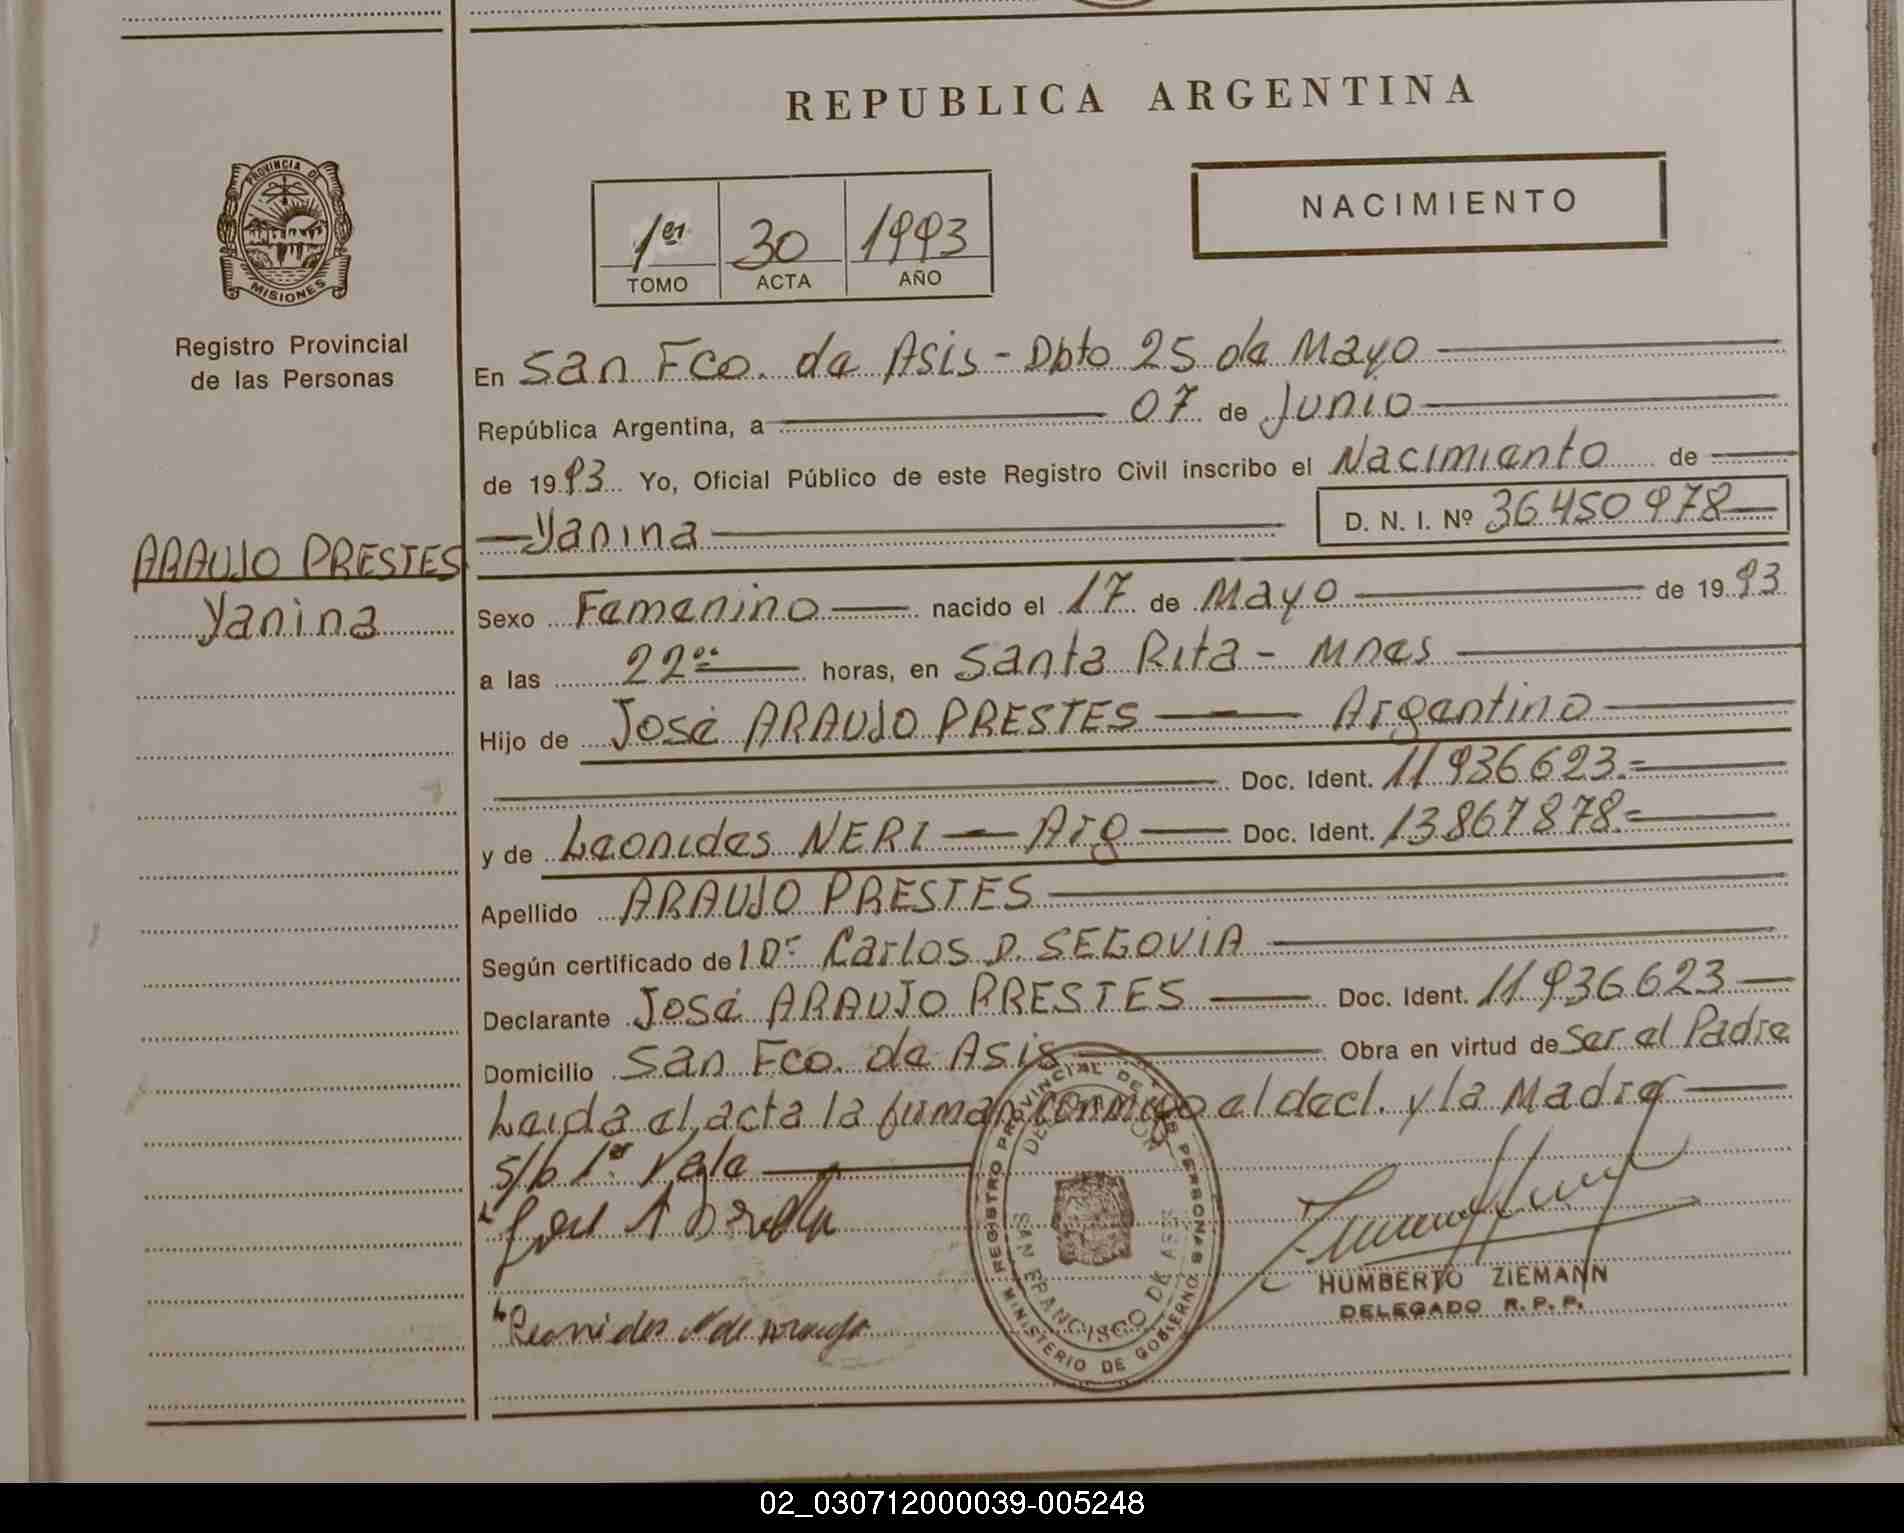 REPUBLICA ARGENTINA
PROVINCIA D
MISIONES
Registro Provincial
de las Personas
1er 30 1993
TOMO ACTA AÑO
NACIMIENTO
En San Fco. de Asis - Dpto 25 de Mayo
República Argentina, a 07 de Junio
de 1993 Yo, Oficial Público de este Registro Civil inscribo el Nacimiento de
Yanina D. N. I. Nº 36450978
ARAUJO PRESTES
Yanina
Sexo Femenino nacido el 17 de Mayo de 1993
a las 22 oo horas, en Santa Rita - Mnes
Hijo de José ARAUJO PRESTES Argentino
Doc. Ident. 11936623.=
y de Leonides NERI Arg Doc. Ident. 13867878.=
Apellido ARAUJO PRESTES
Según certificado de 1 Dr Carlos D. SEGOVIA
Declarante José ARAUJO PRESTES Doc. Ident. 11936623
Domicilio San Fco. de Asis Obra en virtud de Ser el Padre
Leida el acta la firman conmigo el decl. y la Madre
s/b 1er Vale
REGISTRO PROVINCIAL DE LAS PERSONAS
MINISTERIO DE GOBIERNO
DELEGACION
SAN FRANCISCO DE ASIS
HUMBERTO ZIEMANN
DELEGADO R.P.P.
Leonides N de Araujo
02_030712000039-005248